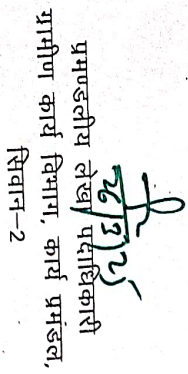 26/3/25
प्रमण्डलीय लेखा पदाधिकारी
ग्रामीण कार्य विभाग, कार्य प्रमंडल,
सिवान-2